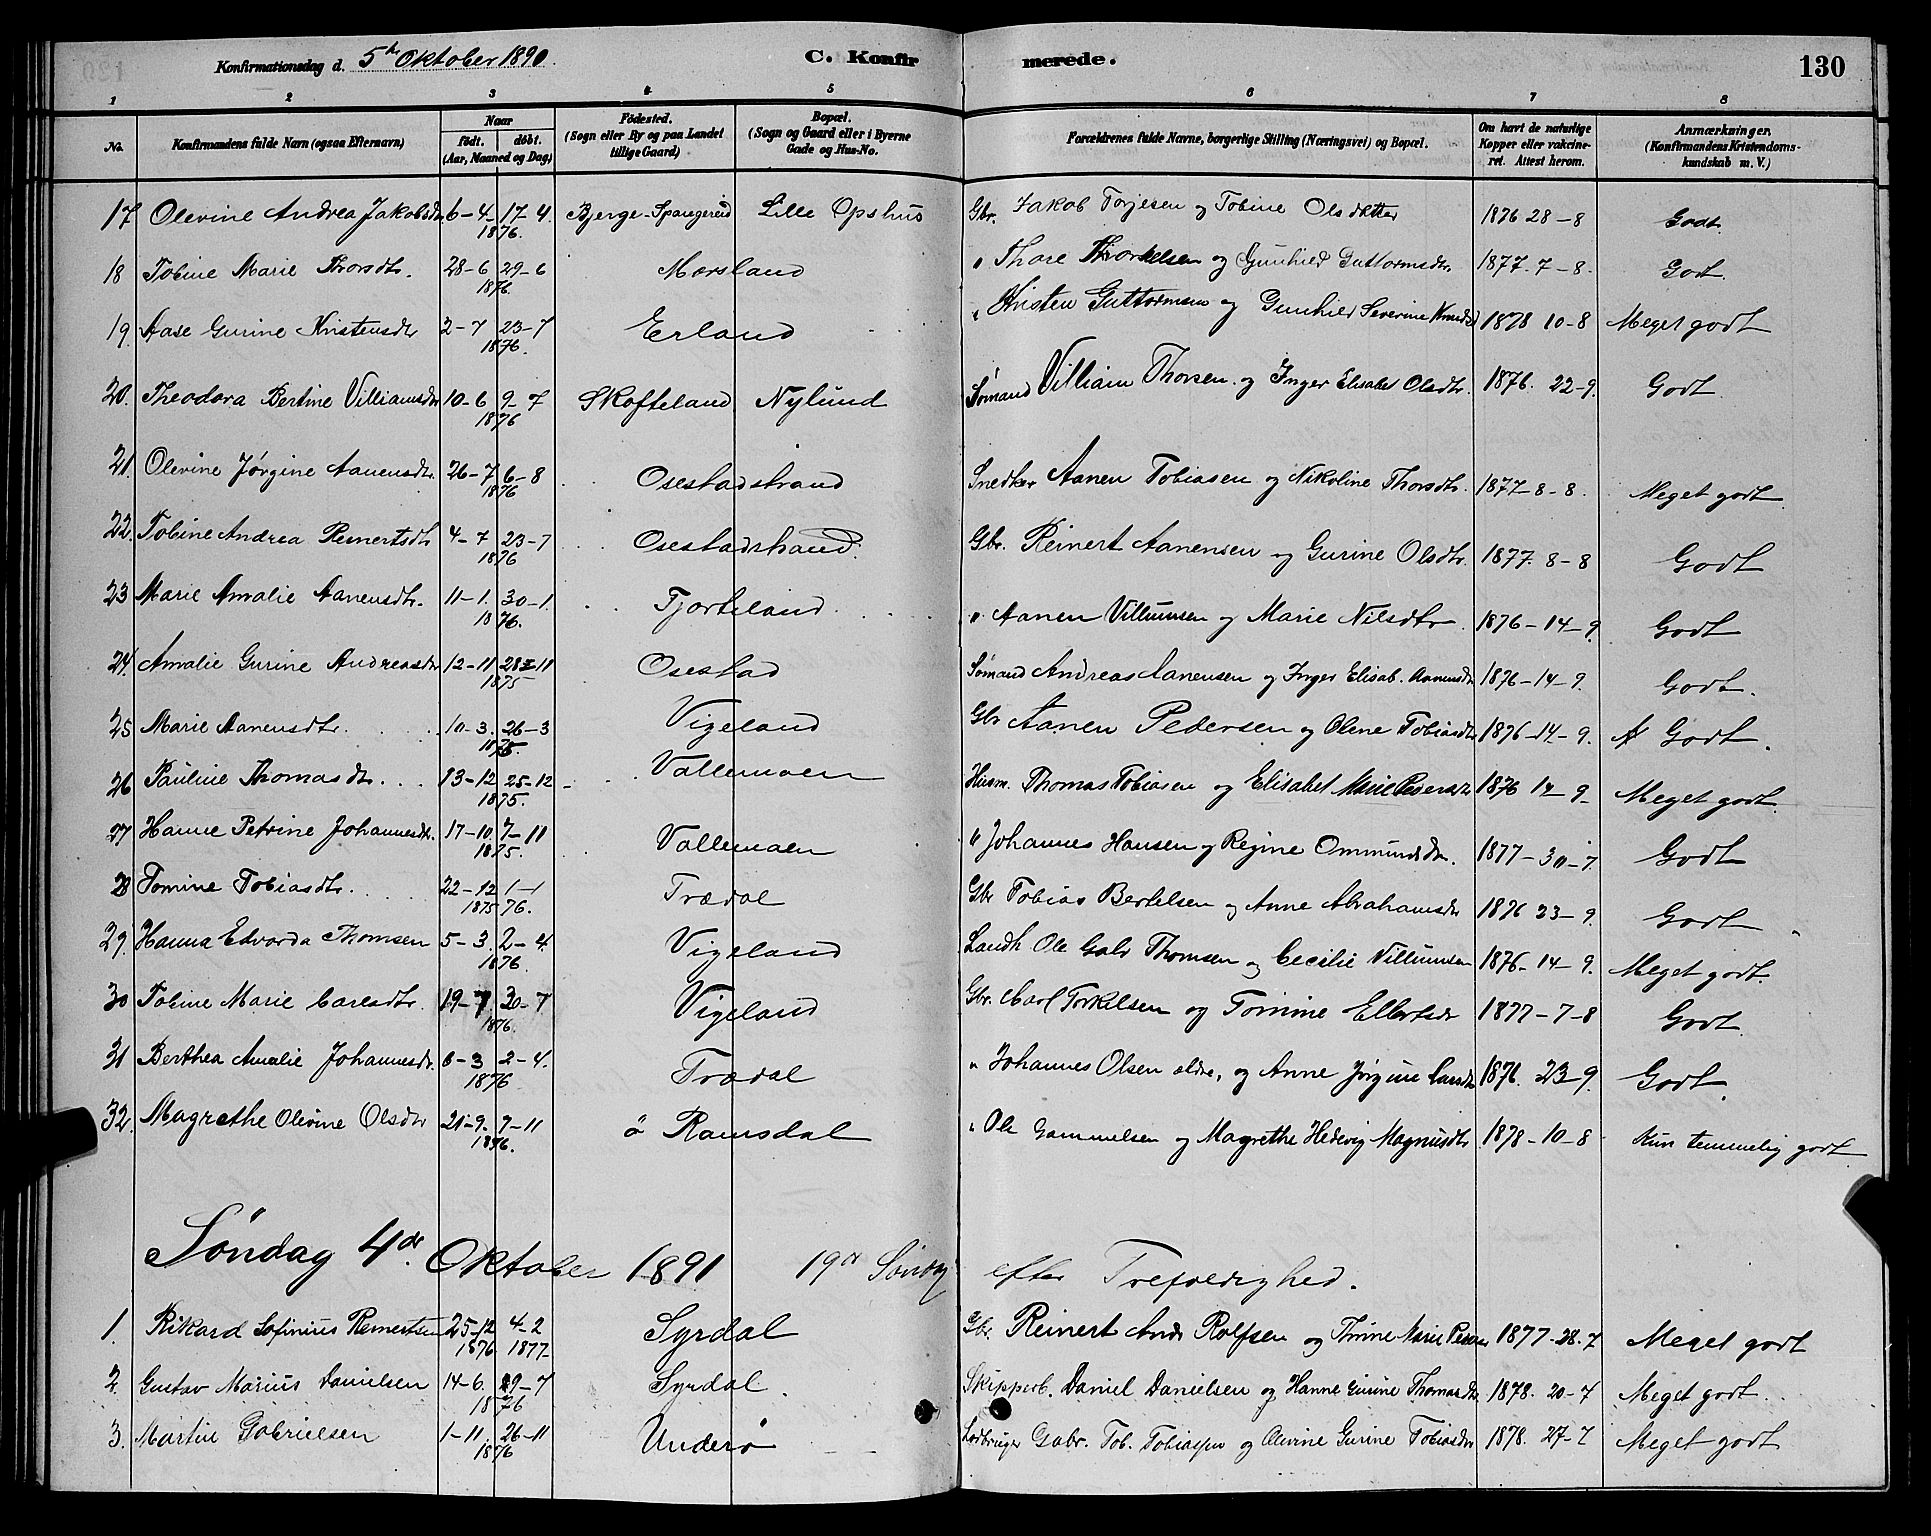 Konfirmationsdag d. 5te Oktober 1890. C. Konfirmerede. 130
1 2 3 4 5 6 7 8
No. Konfirmandens fulde Navn (ogsaa Efternavn) Naar født. døbt. (Aar, Maaned og Dag) Fødested. (Sogn eller By og paa Landet tillige Gaard) Bopæl. (Sogn og Gaard eller i Byerne Gade og Hus-No. Forældrenes fulde Navne, borgerlige Stilling (Næringsvei) og Bopæl. Om havt de naturlige Kopper eller vakcineret. Attest herom. Anmærkninger. (Konfirmandens Kristendomskundskab m. V.)
17 Olevine Andrea Jakobsdtr. 6-4 17-4. 1876. Bjerge-Spangereid Lille Opshus Gbr. Jakob Torjesen og Tobine Olsdatter 1876 28-8 Godt.
18 Tobine Marie Thorsdtr. 28-6 29-6 1876. Morsland " Thore Thorkelsen og Gunhild Guttormsdtr. 1877-7-8. Godt.
19. Aase Gurine Kristensdtr 2-7 23-7 1876. Erland " Kristen Guttormsen og Gunhild Severine 1878 10-8 Meget godt
20. Theodora Bertine Villiamsdtr 10-6 9-7 1876 Skofteland Nylund Sømand Villiam Thorsen og Inger Elisabet Olsdtr. 1876. 22-9. Godt.
21. Olevine Jørgine Aanensdtr. 26-7 6-8 1876 Osestadstrand Snedker Aanen Tobiasen og Nikoline Thorsdtr. 1877-8-8. Meget godt
22. Tobine Andrea Reinertsdtr 4-7 23-7 1876 Osestadstrand. Gbr. Reinert Aanensen og Gurine Olsdtr. 1877. 8-8 Godt
23 Marie Amalie Aanensdtr. 11-1. 30-1. 1876. Fjorteland " Aanen Villumsen og Marie Nilsdtr 1876-14-9. Godt
24. Amalie Gurine Andreasdtr 12-11 28-11 1875 Osestad Sømand Andreas Aanensen og Inger Elisab. Aanensdtr 1876-14-9. Godt.
25 Marie Aanensdtr. 10-3. 26-3 1876. Vigeland Gbr Aanen Pedersen og Olene Tobiasdtr 1876-14-9. Godt.
26 Pauline Thomasdtr. 13-12 25-12 1875. Vallemoen Husm. Thomas Tobiasen og Elisabet Marie Pedersdtr 1876 14-9 Meget godt.
27 Hanne Petrine Johannesdtr. 17-10 7-11 1875. Vallemoen " Johannes Hansen og Regine Ommundsdtr. 1877-30-7 Godt
28 Tomine Tobiasdtr. 22-12 1-1 1875 76. Trædal Gbr Tobias Bertelsen og Anne Abrahamsdtr 1876 23-9. Godt
29. Hanna Edvarda Thomsen 5-3. 2-4. 1876. Vigeland Landh Ole Gabr Thomsen og Cecilie Villumsen 1876-14-9. Meget godt.
30 Tobine Marie Carlsdtr. 19-7 30-7 1876. Vigeland Gbr. Carl Torkelsen og Tomine Ellertsdr 1877-7-8 Godt.
31 Berthea Amalie Johannesdtr. 6-3 2-4. 1876 Trædal " Johannes Olsen ældre, og Anne Jørgine Larsdtr 1876. 23-9. Godt.
32. Magrethe Olevine Olsdtr 21-9. 7-11 1876. ö Ramsdal " Ole Gammelsen og Magrethe Hedevig Magnusdtr 1878-10-8 Kun temmelig godt
Søndag 4de Oktober 1891 19de Søndag efter Trefoldighed.
1. Rikard Sofinius Reinertsen 25-12 4-2 1876 1877 Syrdal Gbr. Reinert Andr Rolfsen og Thrine Marie 1877-28-7 Meget godt
2. Gustav Marius Danielsen 14-6. 29-7 1876 Syrdal Skipperb. Daniel Danielsen og Hanne Gurine Thomasdtr 1878. 20-7 Meget godt
3. Martin Gabrielsen 1-11. 26-11 1876 Underø Gabr. Tob. Tobiassen og Olevine Gurine Tobiasdtr 1878. 27-7 Meget godt